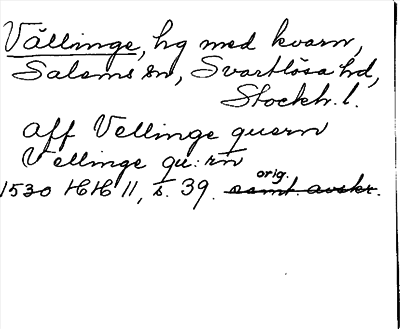 Vällinge, hg med kvarn,
Salems sn, Svartlösa hd,
Stockh. l.
aff Vellinge quern
Vellinge qu:rn
orig.
1530 HH 11, s. 39. samt. avskr.